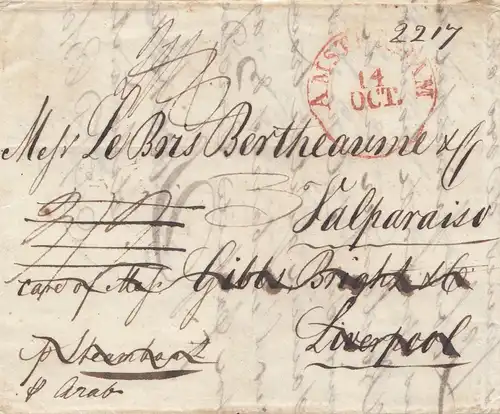 2217
AMSTERDAM
14
OCT.
Messr Le Bris Bertheaume & Co
Valparaiso
care of Messr Gibbs Bright & Co
Liverpool
p Steamboat
p Arab